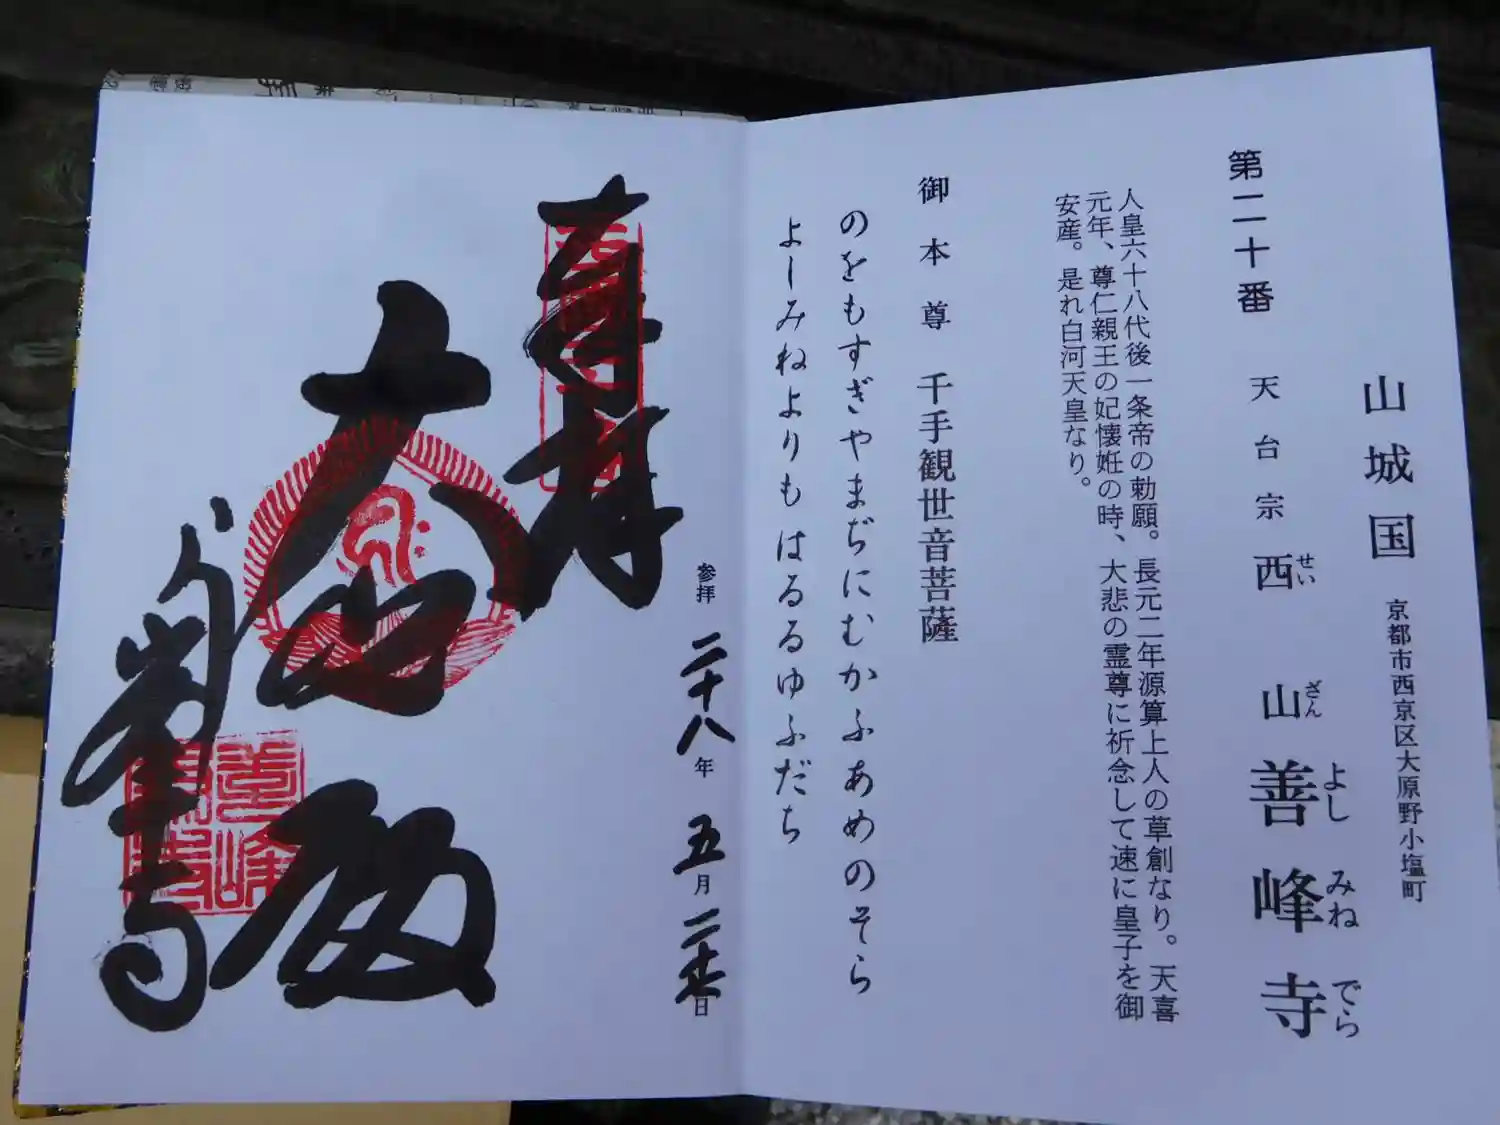 山城国 京都市西京区大原野小塩町
第二十番 天台宗 西山 善峰寺
せい ざん よし みね でら
人皇六十八代後一条帝の勅願。長元二年源算上人の草創なり。天喜
元年、尊仁親王の妃懐妊の時、大悲の霊尊に祈念して速に皇子を御
安産。是れ白河天皇なり。
御本尊 千手観世音菩薩
のをもすぎやまぢにむかふあめのそら
よしみねよりもはるるゆふだち
参拝 二十八年 五月 二十七日
奉拝
大悲殿
善峯寺